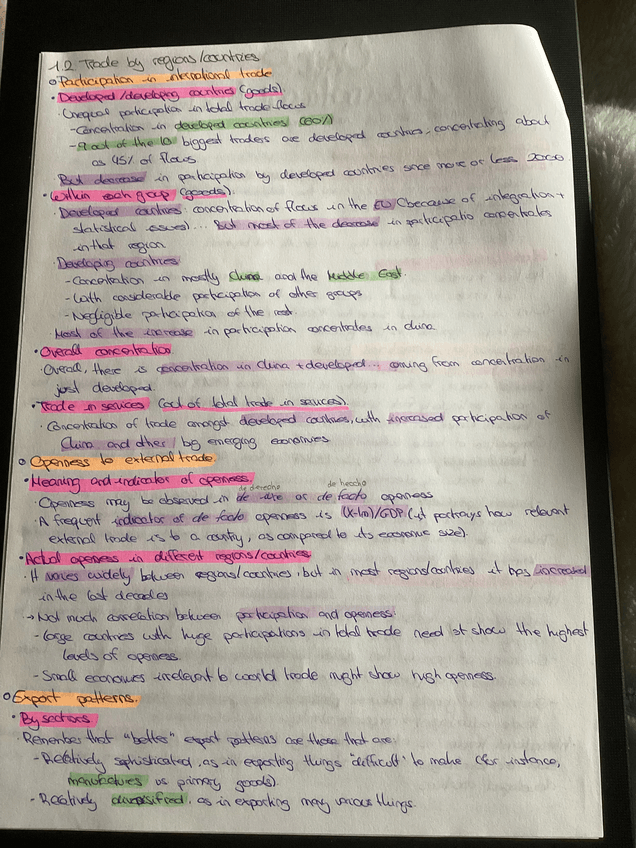 1.2 Trade by regions/countries
Participation in international trade
· Developed/developing countries (goods)
· Unequal participation in total trade flows
- Concentration in developed countries (60%)
- 9 out of the 10 biggest traders are developed countries, concentrating about
as 45% of flows
But decrease in participation by developed countries since more or less 2000
· Within each group (goods).
· Developed countries: concentration of flows in the EU (because of integration +
statistical issues)... but most of the decrease in participatio concentrates
in that region
· Developing countries:
- Concentration in mostly China and the Middle East.
- With considerable participation of other groups
- Negligible participation of the rest.
Most of the increase in participation concentrates in China
· Overall concentration
· Overall, there is concentration in China + developed... coming from concentration in
just developed.
· Trade in services (out of total trade in services).
· Concentration of trade amongst developed countries, with increased participation of
China and other big emerging economies
Openness to external trade.
· Meaning and indicator of openness.
de derecho de heccho
· Openness may be observed in de iure or de facto openness
· A frequent indicator of de facto openness is (X+Im)/GDP (it portrays how relevant
external trade is to a country, as compared to its economic size).
· Actual openess in different regions/countries
· It varies widely between regions/countries, but in most regions/countries it has increased
in the last decades
→ Not much correlation between participation and openness:
- Large countries with huge participations in total trade need st show the highest
levels of openess.
- Small economies irrelevent to world trade might show high openness.
Export patterns.
· By sectors
· Remember that "better" export patterns are those that are:
- Relatively sophisticated, as in exporting things "difficult" to make (for instance,
manufactures vs primary goods).
- Relatively diversified, as in exporting may various things.